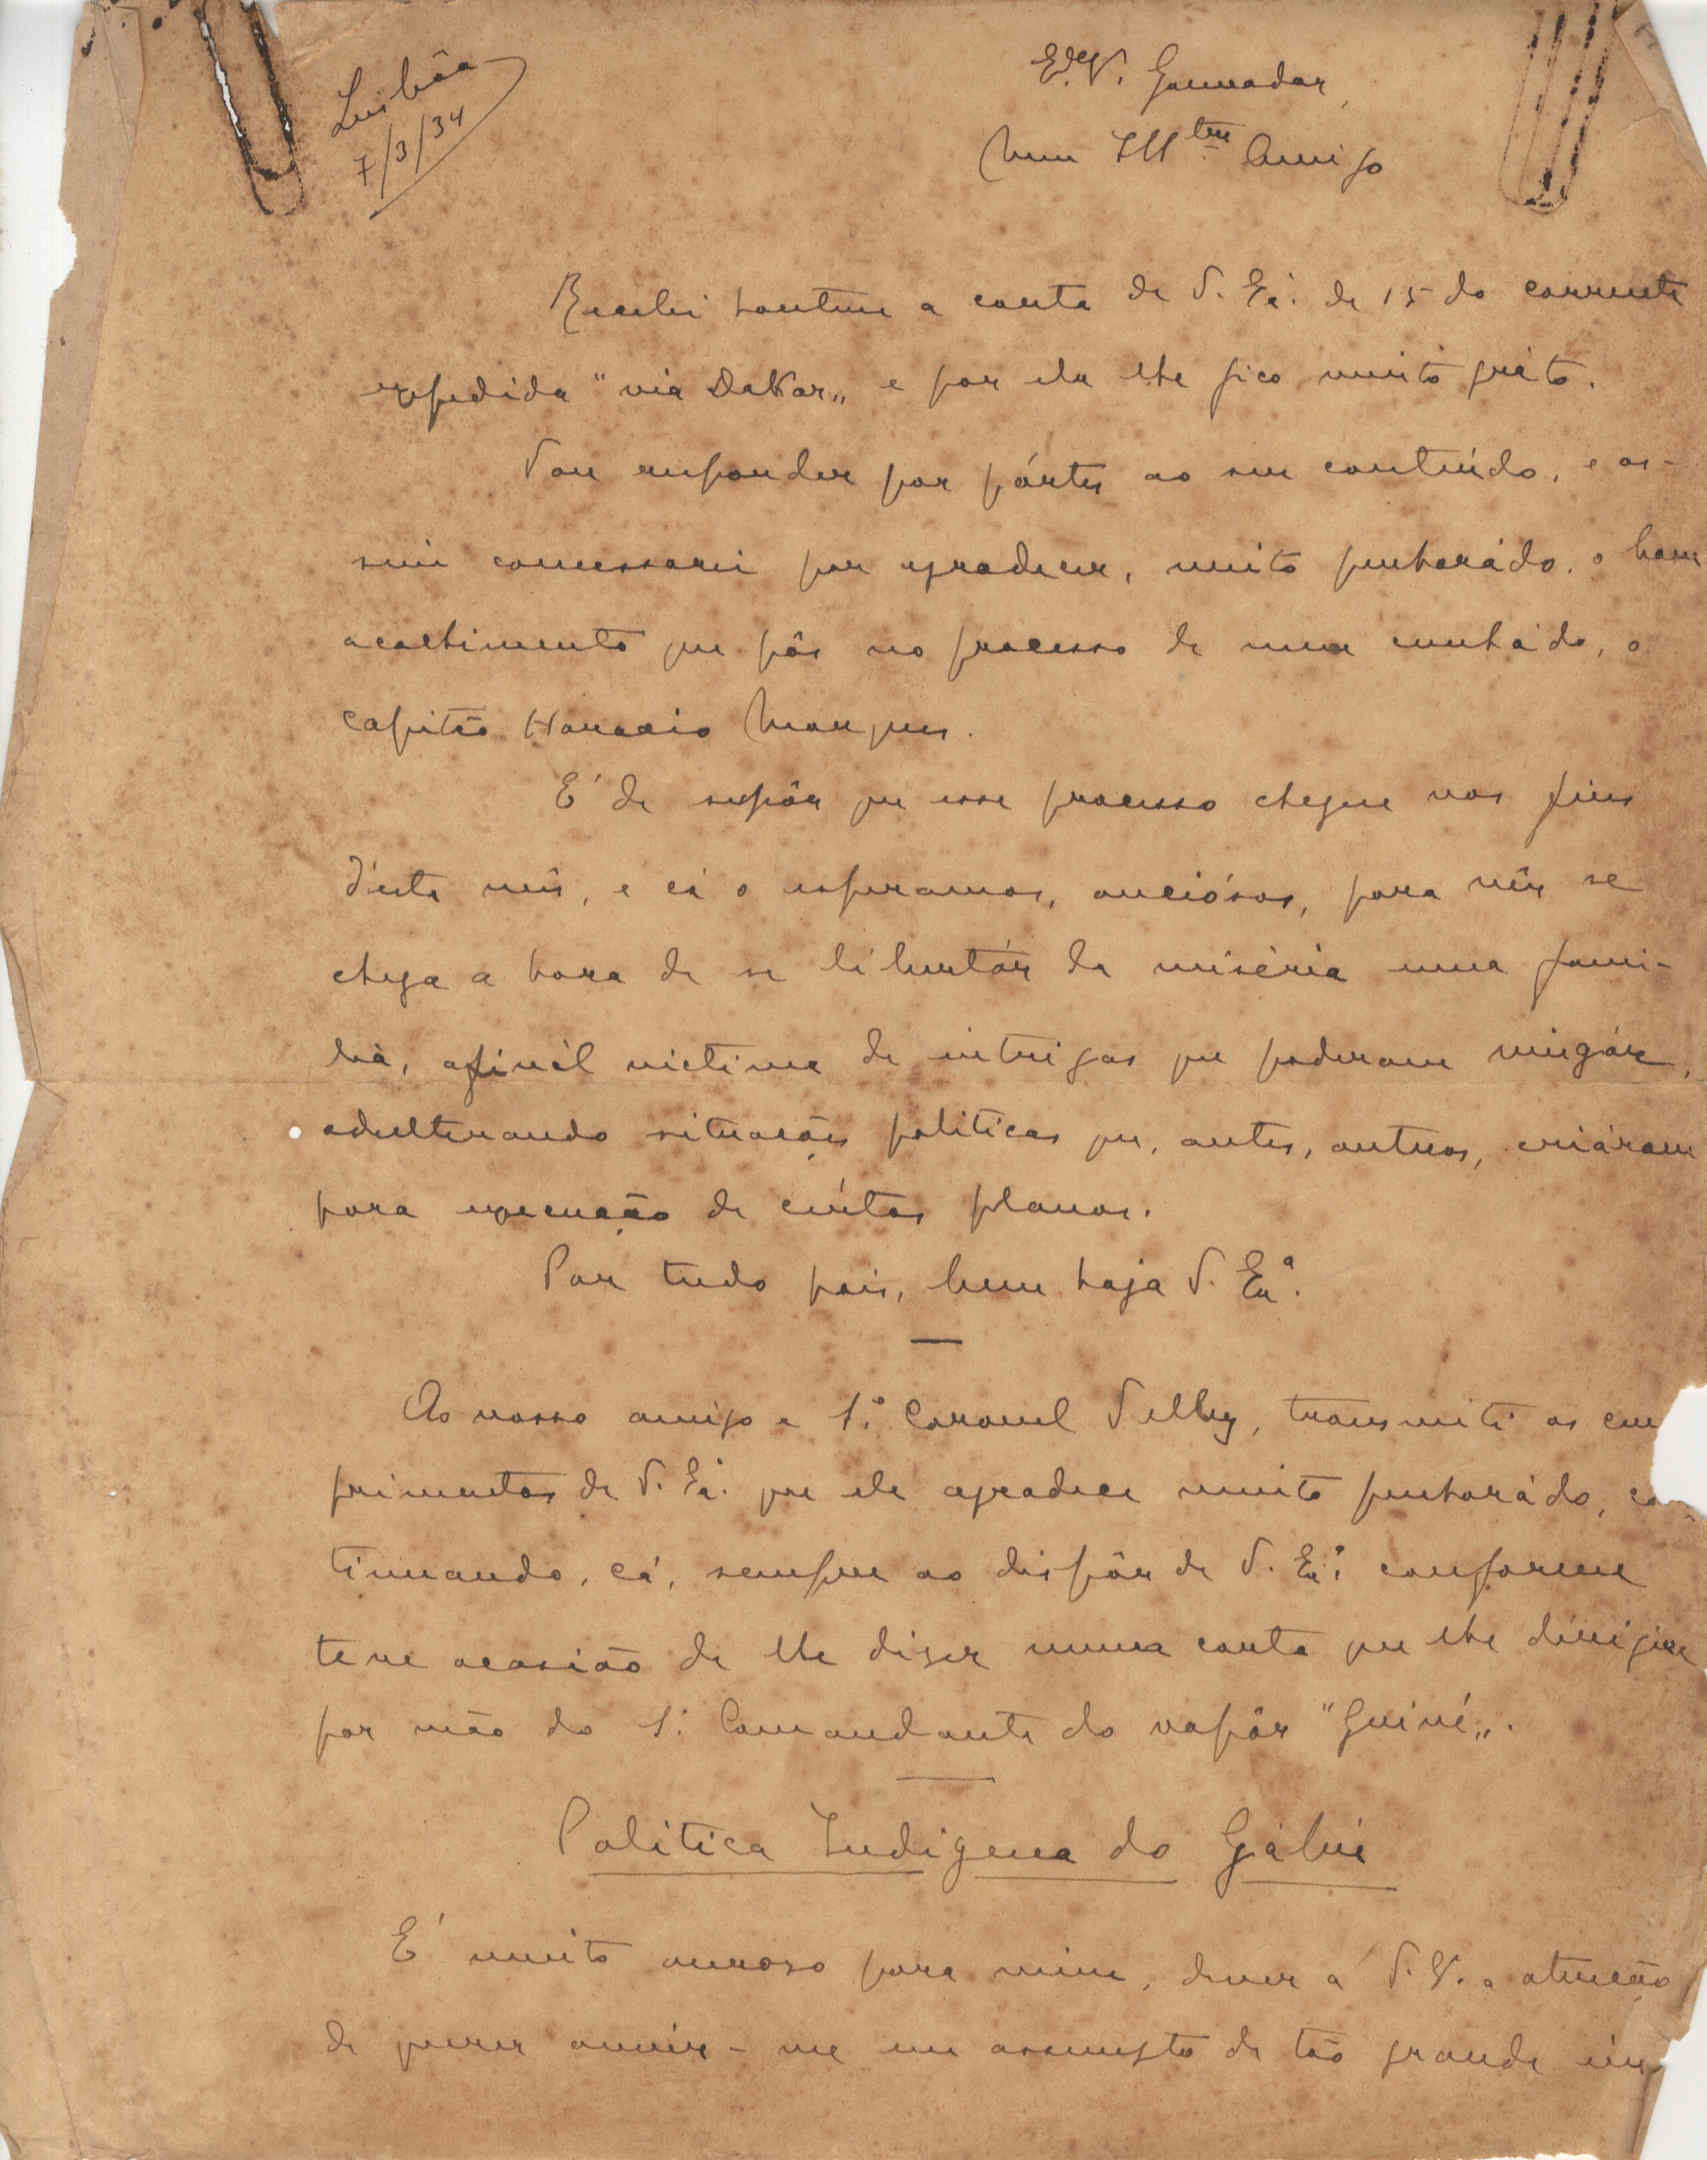 Lisbôa
7/3/34
Governador,
Meu Amigo
Recebi hontem a carta de V. Exª. de 15 do corrente
expedida "via Dakar„ e por ela lhe fico muito gráto.
Vou responder por pártes ao seu conteúdo, e as-
sim comessarei por agradecer, muito penhorádo, o bom
acolhimento que pôs no processo de meu cunhádo, o
Capitão Horacio Marques.
É de supôr que esse processo chegue nos fins
d'este mês, e cá o esperamos, anciósos, para vêr se
chega a hora de se libertár da miséria uma fami-
lia, afinál victima de intrigas que poderam vingár,
adulterando situações politicas que, antes, outros, criáram
para execução de cértos planos.
Por tudo pois, bem haja V. Exª.
Ao nosso amigo e Sr. Coronel Velley, transmiti os cum
primentos de V. Exª. que ele agradece muito penhorádo, con
tinuando, cá, sempre ao dispôr de V. Exª. conforme
teve ocasião de lhe dizer numa carta que lhe dirigiu
por mão do Sr. Comandante do vapôr "Guiné„.
Politica Indigena do Gábú
É muito honroso para mim, dever a V. Exª. a atenção
de querer ouvir-me em assumpto de tão grande